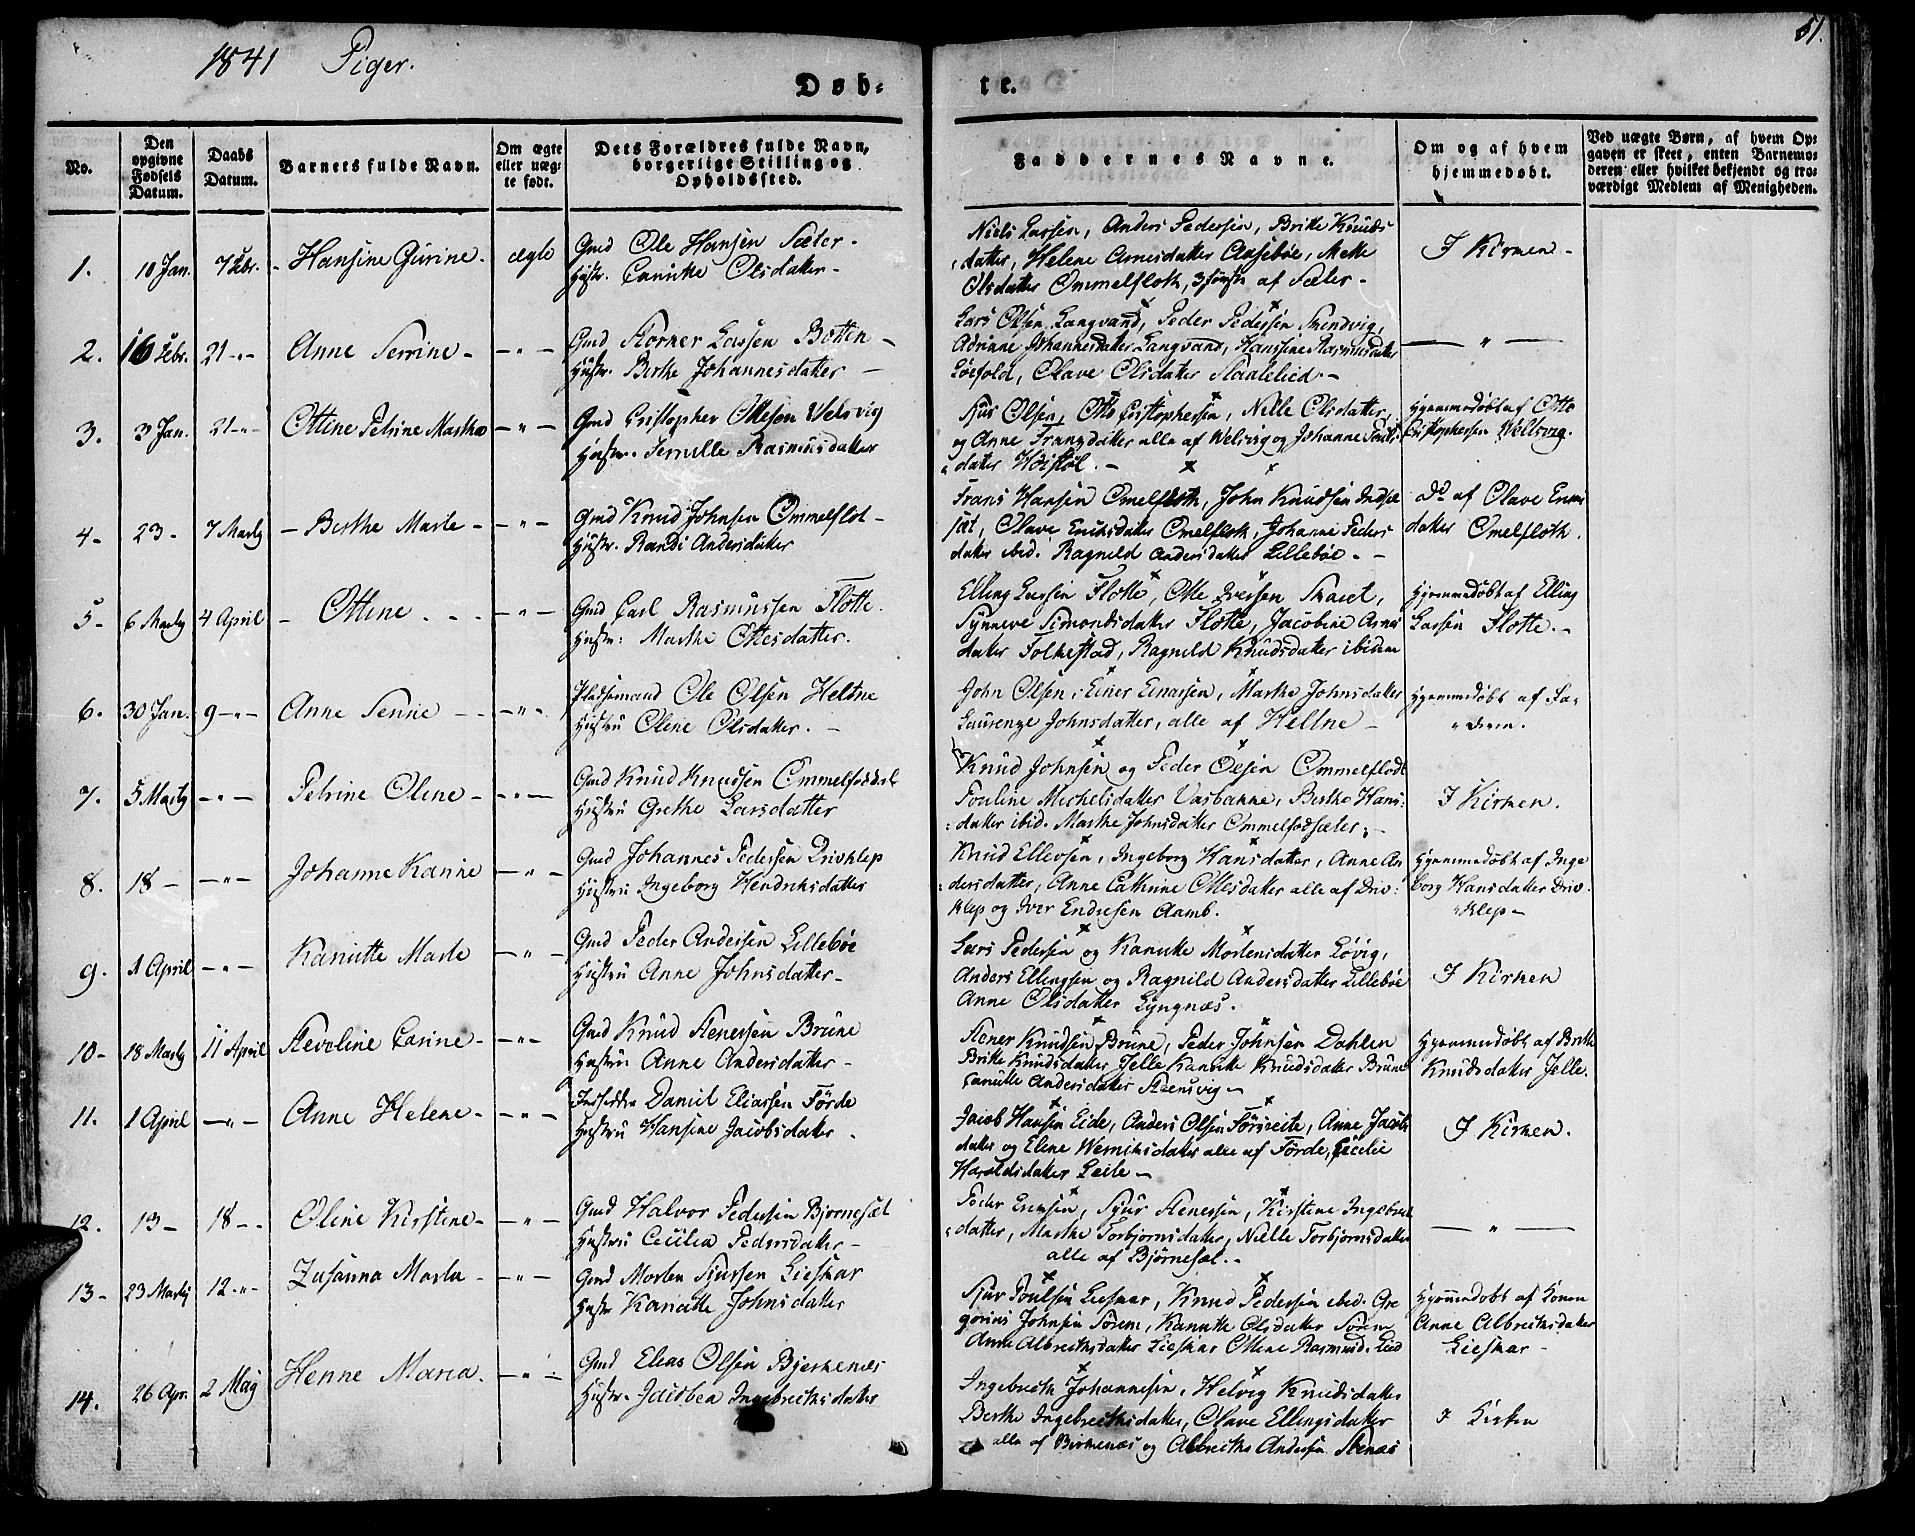 1841 Piger.
51.
Døb-
te.
No.
Den opgivne Fødsels Datum.
Daabs Datum.
Barnets fulde Navn.
Om ægte eller uægte født.
Dets Forældres fulde Navn, borgerlige Stilling og Opholdssted.
Faddernes Navne.
Om og af hvem hjemmedøbt.
Ved uægte Børn, af hvem Opgaven er skeet, enten Barnemoderen eller hvilket bekjendt og troværdigt Medlem af Menigheden.
1. 10 Jan. 7 Febr. Hansine Gurine. ægte
Gmd Ole Hansen Sæter.
Hustr. Olsdatter
Niels Larsen, Anders Pedersen, Britte Knuds
datter, Helene Arnesdatter Aasebøe, Mette
Olsdatter Ommelfloth, af Sæter
I Kirken
2. 16 Febr. 21 -"- Anne Perrine -"-
Gmd Storner Lassen Botten
Hustr. Berthe Johannesdatter
Lars Olsen Langvand, Peder Pedersen
Adriane Johannesdatter Langvand, Hansine Rasmusdatter
Løefold, Olave Olsdatter
"
3. 3 Jan. 21 -"- Ottine Petrine Marthe -"-
Gmd Cristopher Ottesen Velsvig
Hustr. Pernille Rasmusdatter
Sjur Olsen, Otto Cristophersen, Nille Olsdatter,
og Anne Frantzdatter alle af Welsvig og Johanne Pouls
datter
Hjemmedøbt af Otto
Cristophersen Wellsvig.
4 - 23 - 7 Marty Berthe Marte -"-
Gmd Knud Johnsen Ommelflot
Hustr. Randi Andersdatter
Frans Hansen Omelfloth, John Knudsen
Olave Ericksdatter Omelfloth, Johanne Peders
datter ibid. Ragnild Andersdatter Lillebøe
do af Olave
datter Omelfloth.
5 - 6 Marty 4 April Ottine -"-
Gmd Carl Rasmussen Flotte.
Hustr: Marthe Ottesdatter.
Elling Larsen Flotte, Otte Iversen
Synneve Simonsdatter Flotte, Jacobine Arns
datter Folkestad, Ragnild Knudsdatter ibidem
Hjemmedøbt af Elling
Larsen Flotte.
6. 30 Jan. 9 -"- Anne -"-
Pladsemand Ole Olsen Heltne
Hustru Olene Olsdatter.
John Olsen, Einer Einarsen, Marthe Johnsdatter
Laurenze Johnsdatter, alle af Heltne
Hjemmedøbt af Fa-
deren.
7. 5 Marty -"- Petrine Olene -"-
Gmd Knud Knudsen
Hustru Grethe Larsdatter
Knud Johnsen og Peder Olsen Ommelflodt
Pouline Michelsdatter Berthe Hans:
datter ibid. Marthe Johnsdatter
I Kirken.
8. 18 - -"- Johanne Karine -"-
Gmd Johannes Pedersen Drivklep
Hustru Ingeborg Hendriksdatter
Knud Ellevsen, Ingeborg Hansdatter, Anne An
dersdatter, Anne Cathrine Ottesdatter alle af Driv:
klep og Iver Endresen Aamb.
Hjemmedøbt af Inge
borg Hansdatter Driv
klep
9. 1 April -"- Kanutte Marte -"-
Gmd Peder Andersen Lillebøe
Hustru Anne Johnsdatter
Lars Pedersen og Kanutte Mortensdatter Løvig,
Anders Ellingsen og Ragnild Andersdatter Lillebøe
Anne Olsdatter Lyngnæs.
I Kirken
10 - 18 Marty 11 April Stevoline Carine -"-
Gmd Knud Stenersen Brune
Hustru Anne Andersdatter
Stener Knudsen Brune, Peder Johnsen Dahlen
Britte Knudsdatter Jelle Kanutte Knudsdatter Brune
Canutte Andersdatter Steensvig
Hjemmedøbt af Britte
Knudsdatter Jelle.
11. 1 April -"- Anne Helene -"-
Daniel Eliassen Förde
Hustru Hansine Jacobsdatter.
Jacob Hansen Eide, Anders Olsen Anne Jacobs
datter og Elene alle af Förde, Cecilie
Haraldsdatter
I Kirken.
12. 13 - 18 -- Oline Kirstine -"-
Gmd Halvor Pedersen Bjørnesæt
Hustru Cecilia Pedersdatter
Peder Sjur Stenersen, Kirstine Ingebret
datter, Marthe Torbjørnsdatter, Nille Torbjørnsdatter
alle af Bjørnesæt.
"
13 - 23 Marty 12 -"- Zusanna Marta -"-
Gmd Morten Sjursen Lieskar
Hustr Kanutte Johnsdatter
Sjur Poulsen Lieskar, Knud Pedersen ibid. Gre
gorius Johnsen Sørem, Kanutte Olsdatter Sørem
Anne Albrecthsdatter Lieskar Oline Rasmusd. Lied
Hjemmedøbt af Konen
Anne Albrecthsdatter
Lieskar
14. 26 Apr. 2 May Henne Maria. -"-
Gmd Elias Olsen Bjerkenæs
Hustr. Jacobea Ingebrecthsdatter
Ingebrecth Johannesen, Helvig Knudsdatter
Berthe Ingebrecthsdatter, Olave Ellingsdatter
alle af Birkenæs og Albrecth Andersen Stenæs
I Kirken